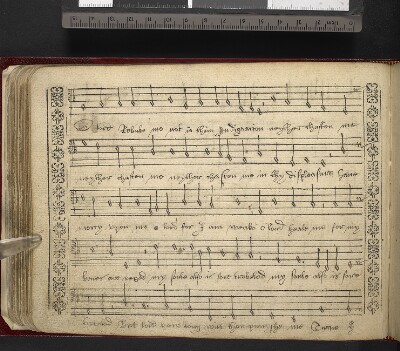 Lord Rebuke me not in thine Indignation neyther chasten me
neyther chasten me neyther chasten me in thy displeasure have
mercy upon me o lord for I am weake o lord heale me for my
bones are vexed my soule also is sore troubled my soule also is sore
but lord how long wilt thou me Turne